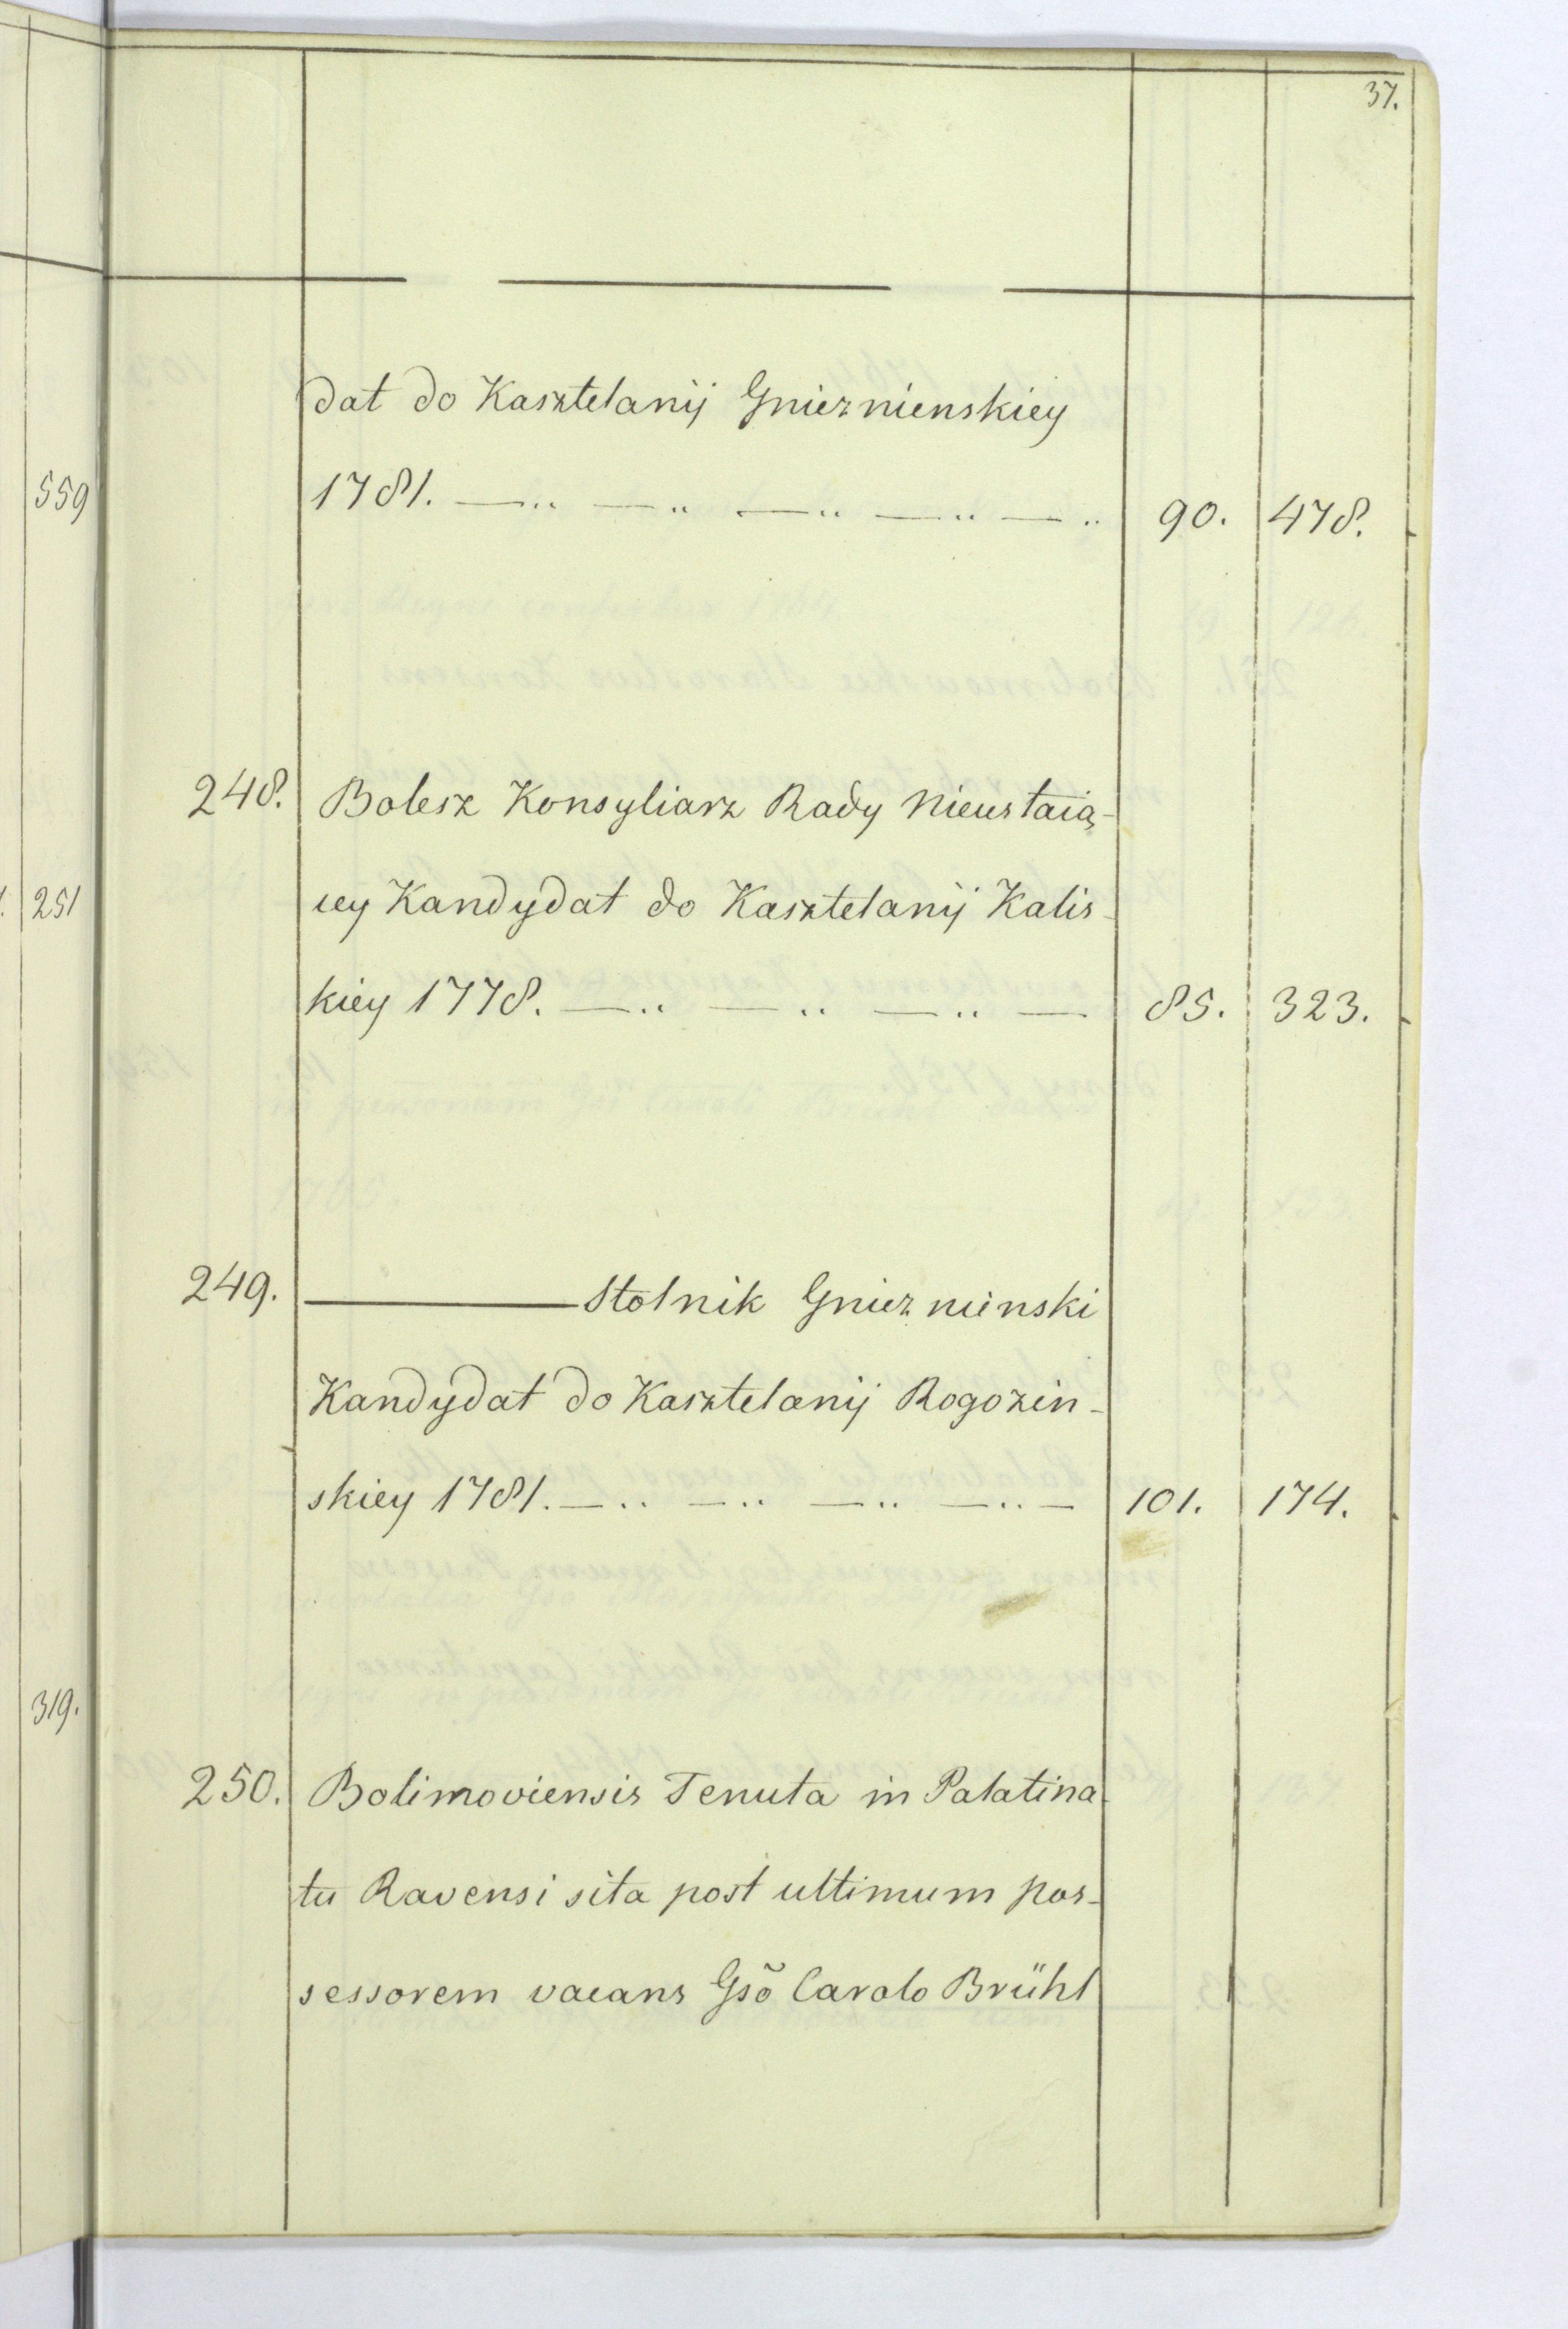 37.
dat do Kasztelanij Gnieznienskiey
559
1781. — .. — .. — .. — .. — .. 90. 478.
248. Bolesz Konsyliarz Rady Nieustaią-
251 cey Kandydat do Kasztelanij Kalis-
kiey 1778. — .. — .. — .. — 85. 323.
249. ——— Stolnik Gnieznienski
Kandydat do Kasztelanij Rogozin-
skiey 1781. — .. — .. — .. — .. — 101. 174.
319.
250. Bolimoviensis Tenuta in Palatina-
tu Ravensi sita post ultimum pos-
sessorem vacans Gsõ Carolo Brühl